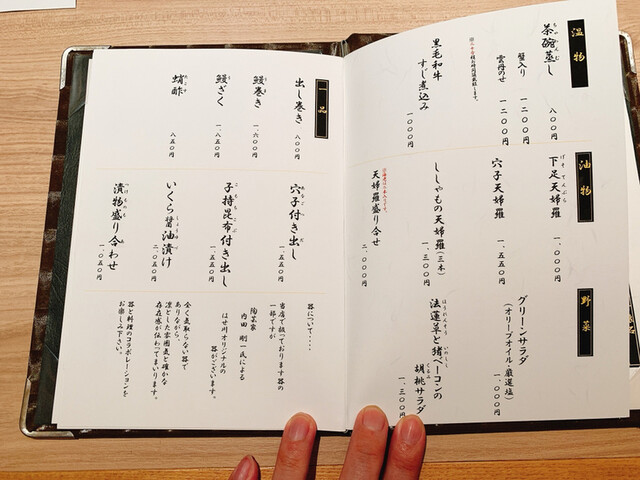 温物
茶碗蒸し
ちゃわんむし
八〇〇円
蟹入り
一二〇〇円
雲丹のせ
一二〇〇円
黒毛和牛
すじ煮込み
一〇〇〇円
油物
下足天婦羅
げそてんぷら
一、〇〇〇円
穴子天婦羅
一、五五〇円
ししゃもの天婦羅(三本)
一、三〇〇円
天婦羅盛り合せ
二、〇〇〇円
野菜
グリーンサラダ
(オリーブオイル・厳選塩)
一、〇〇〇円
法蓮草と猪ベーコンの
ほうれんそう
いのしし
胡桃サラダ
くるみ
一、三〇〇円
一品
出し巻き
八〇〇円
鰻巻き
う
一、六〇〇円
鰻ざく
う
一、八五〇円
蛸酢
たこす
八五〇円
穴子付き出し
あなごつきだ
一、五五〇円
子持昆布付き出し
こもちこぶ
一、五五〇円
いくら醤油漬け
しょうゆづ
二、〇五〇円
漬物盛り合わせ
つけもの
一、〇五〇円
器について・・・・
当店で扱っております器の
一部ですが
陶芸家
内田 剛一氏による
はせ川オリジナルの
器がございます。
全く気取らない器で
ありながら、
凛とした雰囲気と確かな
存在感が伝わってまいります。
器と料理のコラボレーションを
お楽しみ下さい。